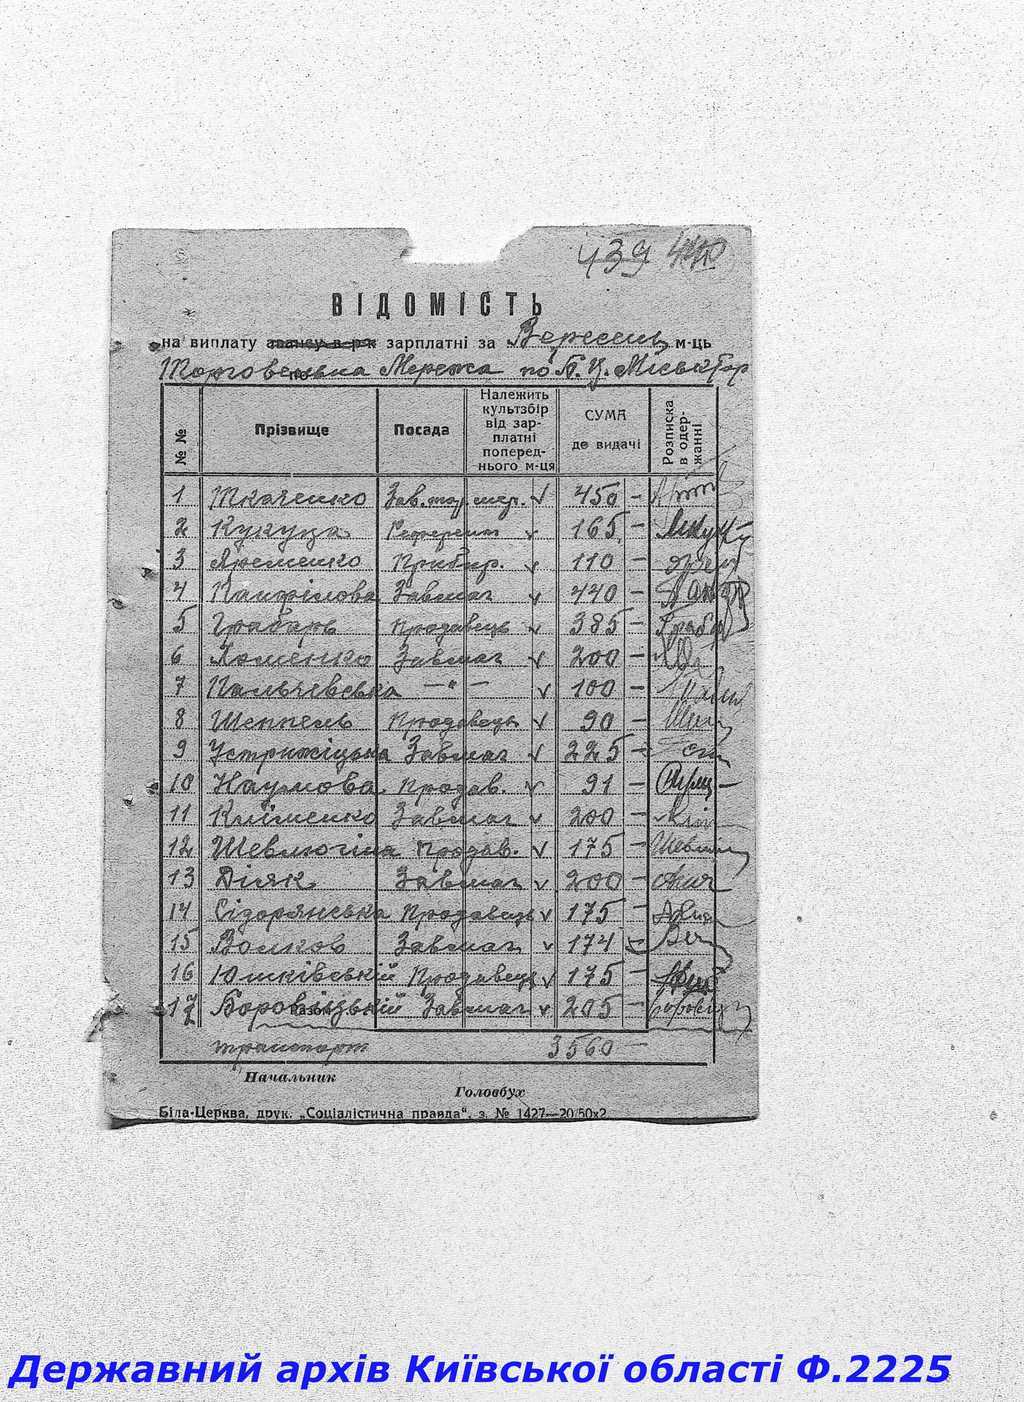 439 440
ВІДОМІСТЬ
на виплату авансу в рх зарплатні за Вересень м-ць
Торговельна Мережа по Б. Ц. Міськторг
№ № Прізвище Посада Належить культзбір від зарплатні попереднього м-ця СУМА до видачі Розписка в одержанні
1 Ткаченко Зав.тор.мер. 450 —
2 Кукуца Референт 165 —
3 Яременко Прибир. 110 —
4 Панфілова Завмаг 440 —
5 Грабарь Продавець 385 — Грабар
6 Хоменко Завмаг 200 —
7 Пальчевська — " — 100 —
8 Шеппель Продавець 90 —
9 Устрижіцька Завмаг 225 —
10 Наумова Продав. 91 —
11 Кліменко Завмаг 200 —
12 Шевлюгіна Продав. 175 —
13 Діяк Завмаг 200 —
14 Сідорянська Продавець 175 —
15 Волков Завмаг 174
16 Юшківській Продавець 175 —
17 Боровіцькій Завмаг 205 —
Разом
транспорт 3560 —
Начальник
Головбух
Біла-Церква, друк. „Соціалістична правда“, з. № 1427—20/50х2
Державний архів Київської області Ф.2225